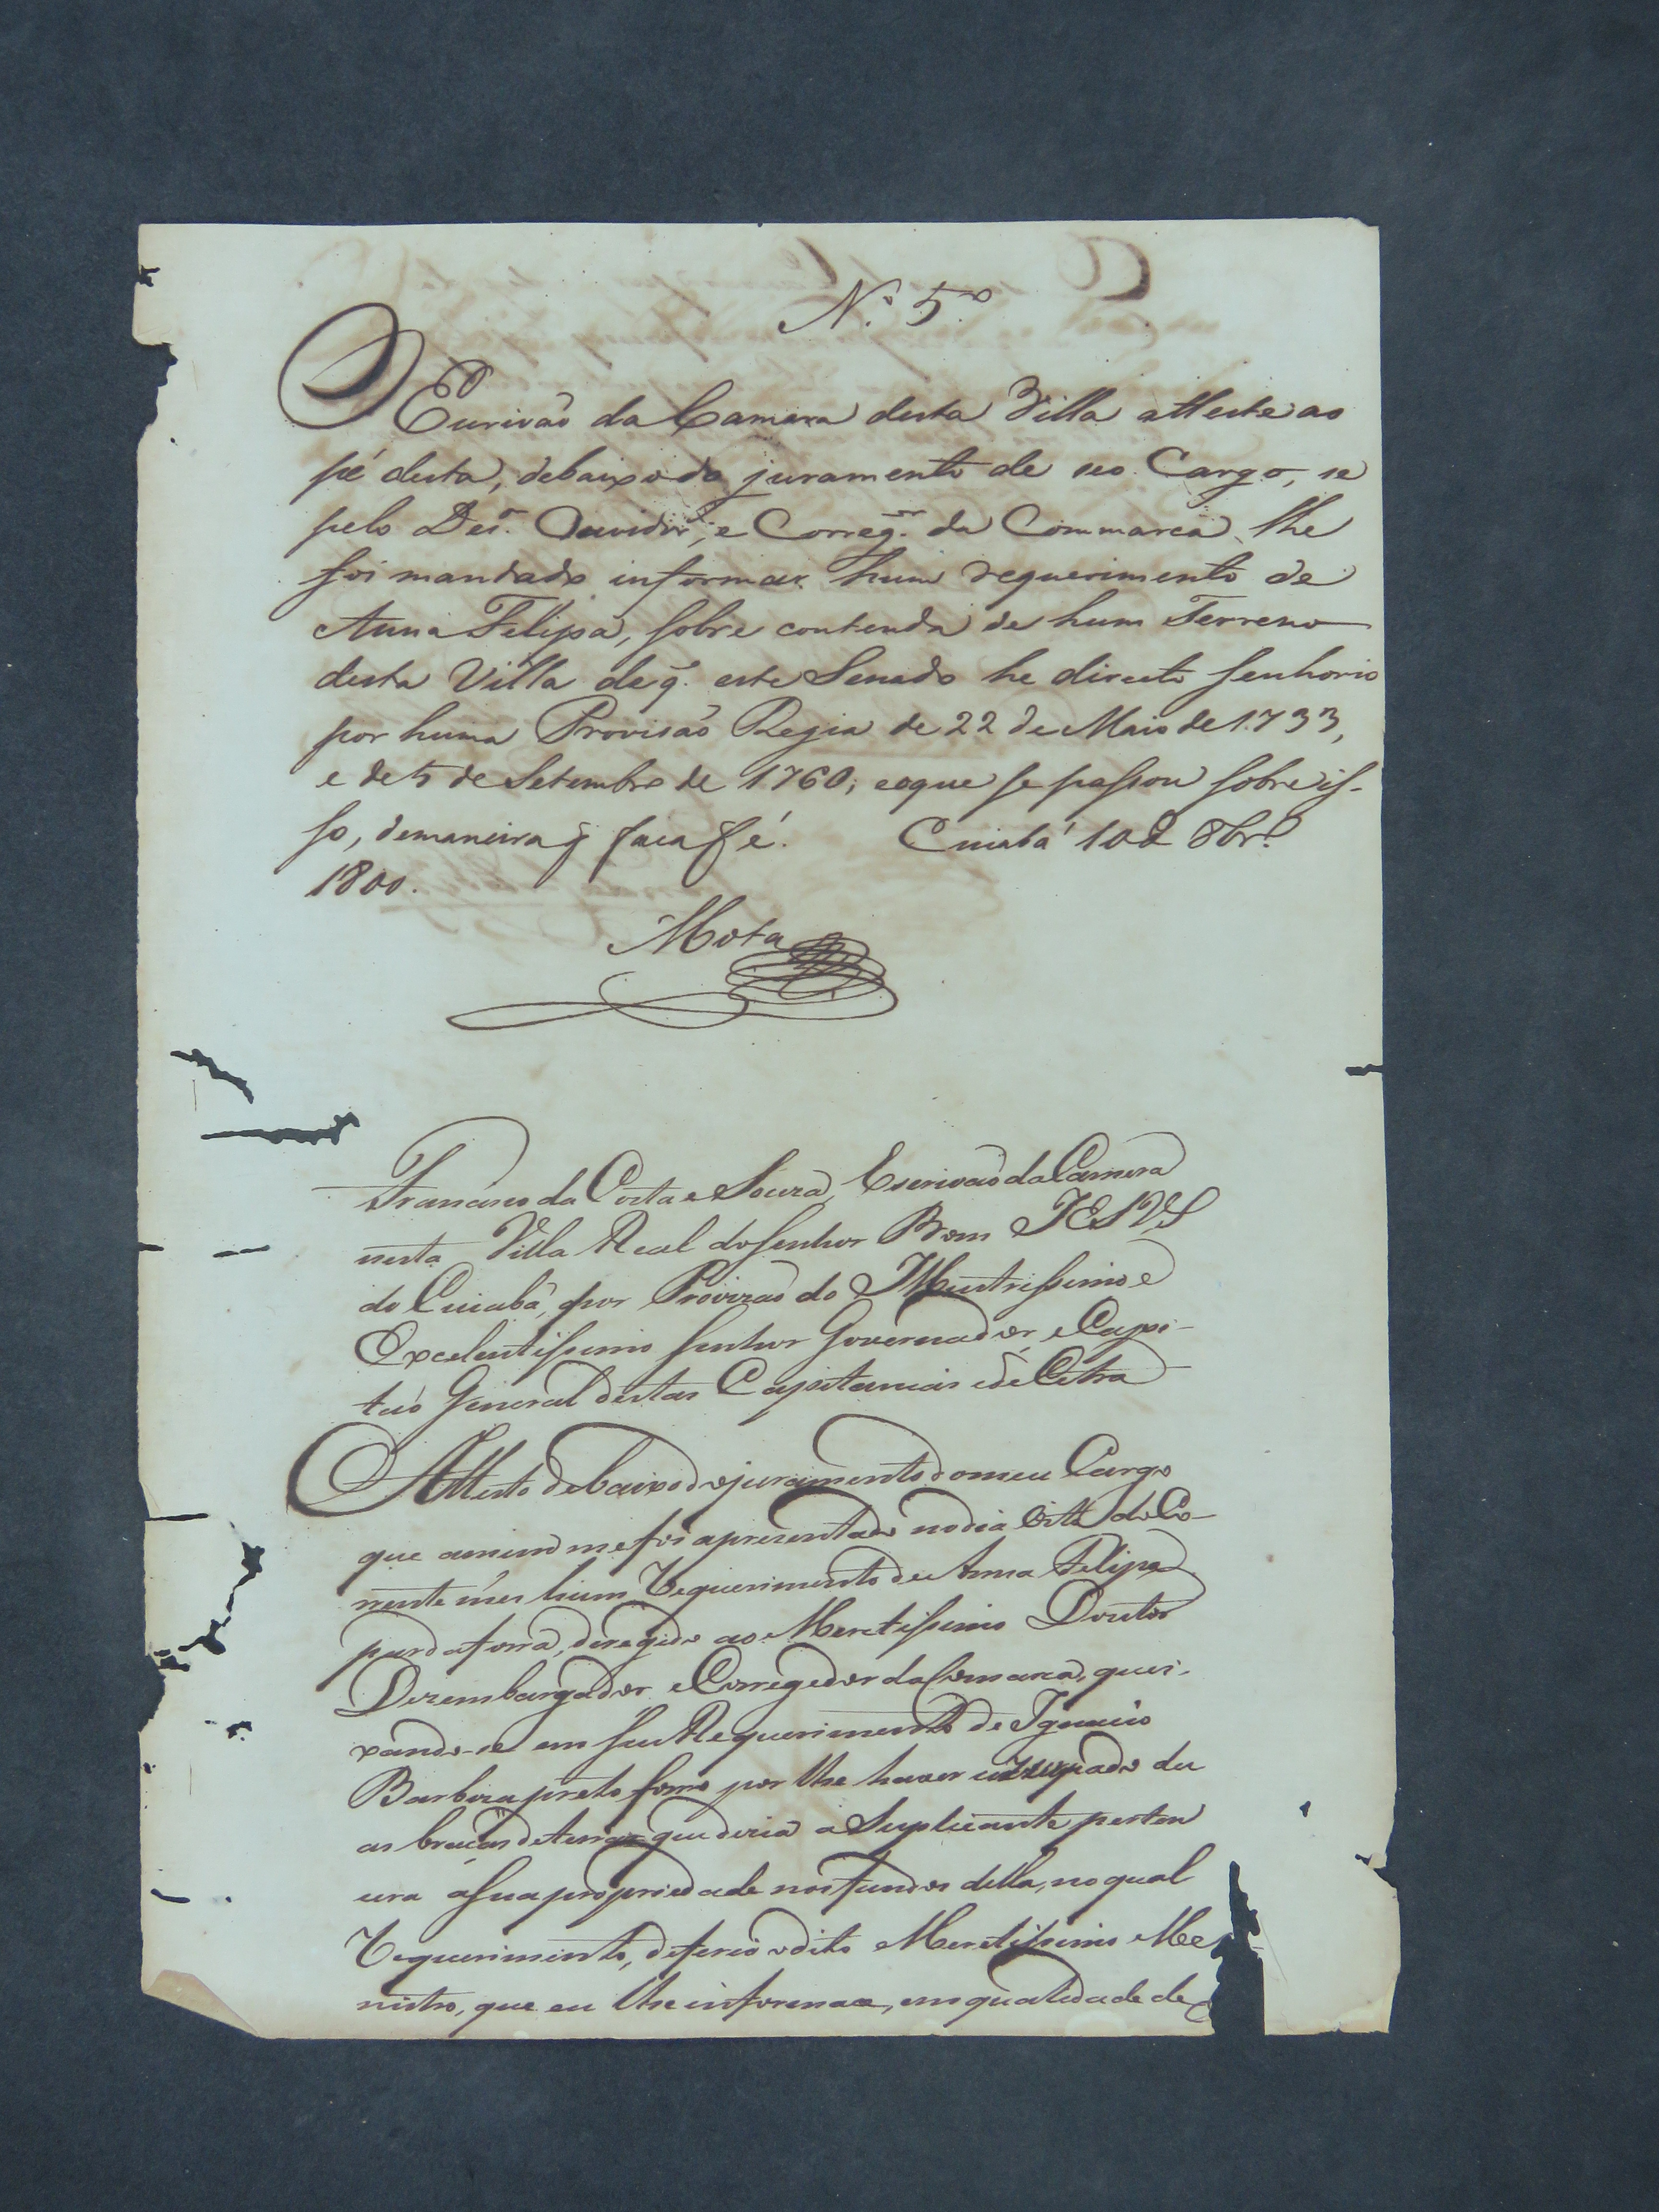 N.º 5.º
O Escrivaõ da Camera desta Villa atteste ao
pé desta, debaixo do juramento de seo Cargo, se
pelo Des.ºʳ Ouvidor, e Correg.ºʳ da Commarca, lhe
foi mandado informar hum requerimento de
Anna Felipa, sobre contenda de hum Terreno
desta Villa de q̃ este Senado he directo senhorio
por huma Provisaõ Regia de 22 de Maio de 1733,
e de 5 de Setembro de 1760; e o que se passou sobre is-
so, de maneira q̃ faça fé. Cuiabá 10 de 8br.º
1800.
Mota
Francisco da Costa e Souza, Escrivaõ da Camera
nesta Villa Real do Senhor Bom JESVS
do Cuiabá, por Provizaõ do Illustrissimo e
Excelentissimo Senhor Governador, e Capi-
taõ General destas Capitanias ede Cetra
Attesto debaixo do juramento do meu Cargo
que amim me foi aprezentado no dia oito do Co-
rrente mes hum Requerimento de Anna Felipa
parda forra, deregido ao Meretissimo Doutor
Dezembargador e Corregedor da Comarca, quei-
xando-se em seu Requerimento de Ignacio
Barboza preto forro por lhe haver uzurpado du
as braças de terras que dizia a Suplicante perten
cera á sua propriedade nos fundos della, no qual
Requerimento, deferio o dito Meretissimo Me
nistro, que eu lhe informace, em qualidade de